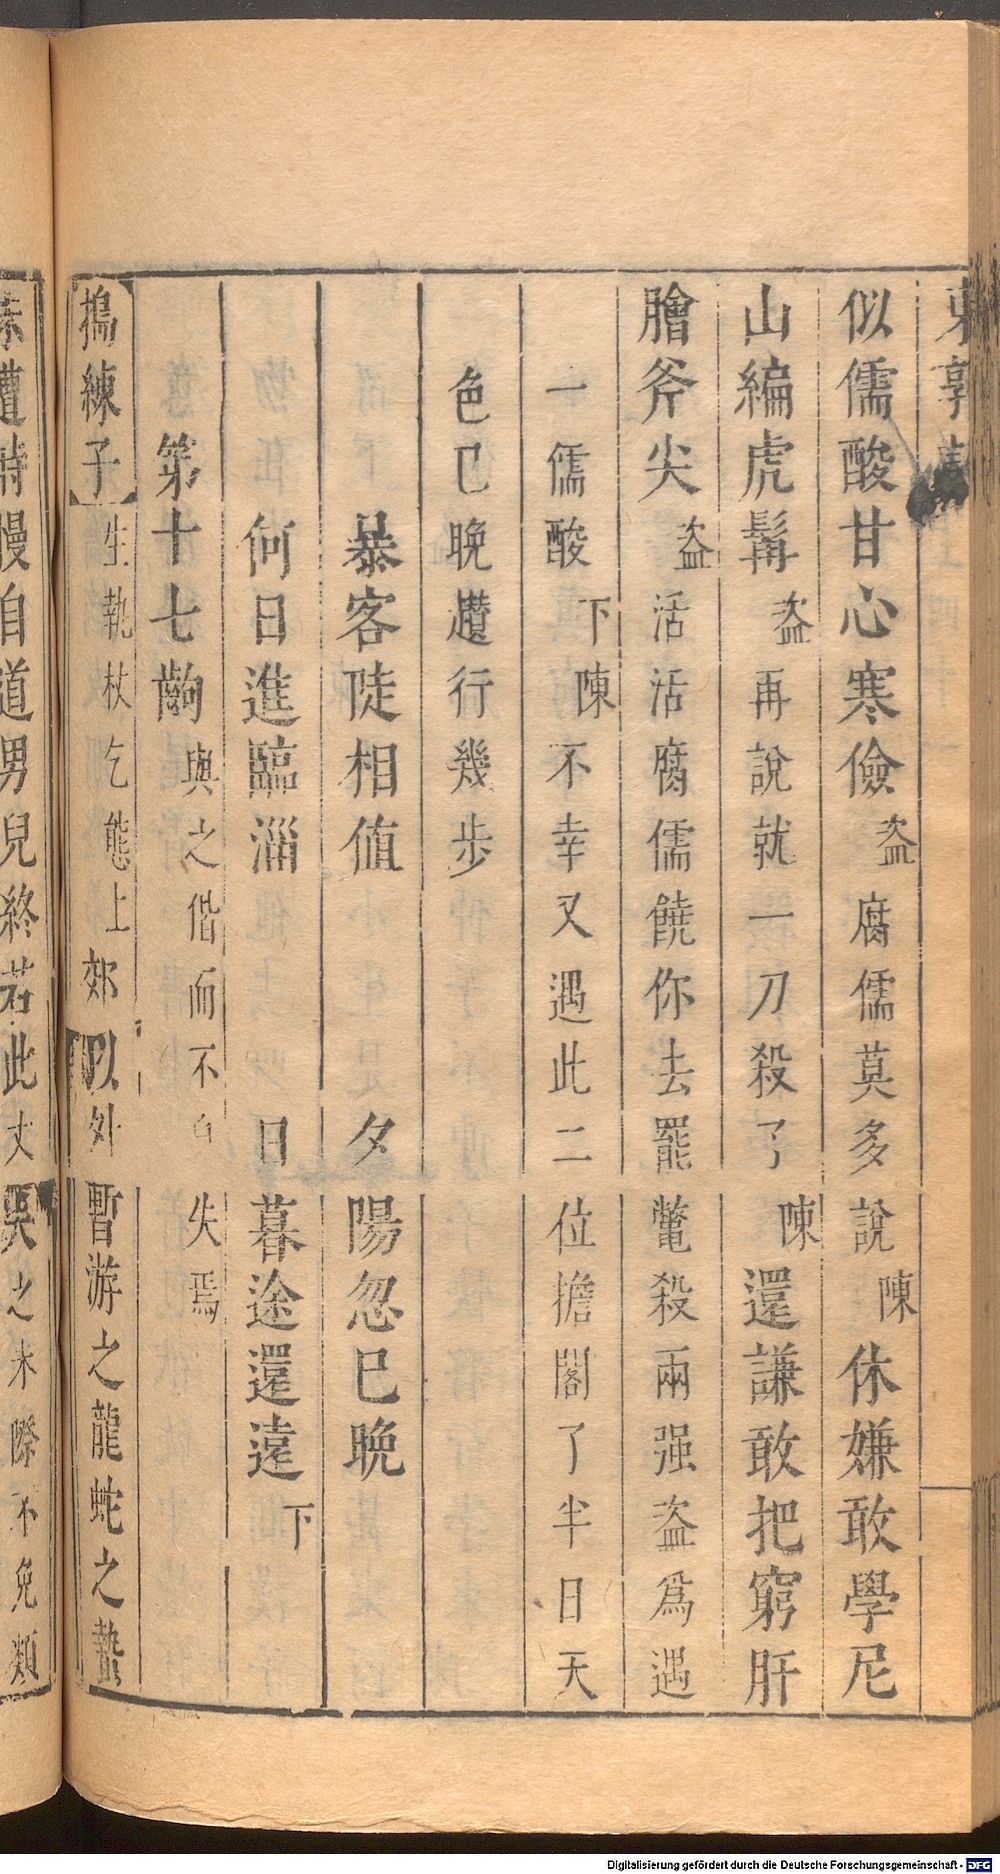 東郭記
似儒酸甘心寒儉盜腐儒莫多說陳休嫌敢學尼
山編虎髯盜再說就一刀殺了陳還謙敢把窮肝
膾斧尖盜活活腐儒饒你去罷鼈殺兩强盜爲遇
一儒酸下陳不幸又遇此二位擔閣了半日天
色巳晚趲行幾步
暴客陡相值 夕陽忽巳晚
何日進臨淄 日暮途還遠下
第十七齣與之偕而不 失焉
搗練子生執杖乞態上郊 外暫游之龍蛇之蟄
遭時慢自道男兒終若此丈 吳之未際不免類
Digitalisierung gefördert durch die Deutsche Forschungsgemeinschaft - DFG